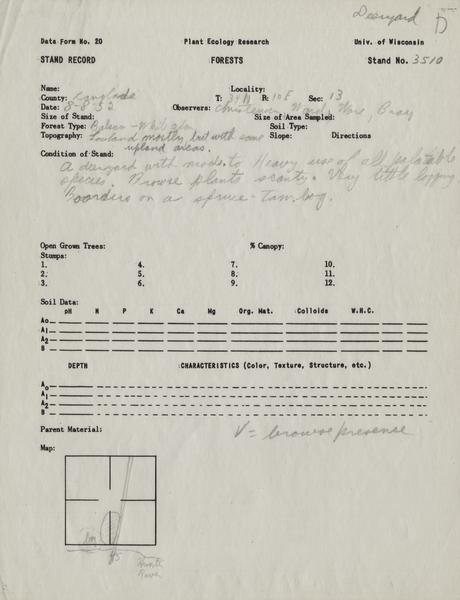 Deeryard D
Data Form No. 20 Plant Ecology Research Univ. of Wisconsin
STAND RECORD FORESTS Stand No. 3510
Name: Locality:
County: Langlade T: 34N R: 10E Sec: 13
Date: 8-8-52 Observers: Christensen,
Size of Stand: Size of Area Sampled:
Forest Type: Balsam - Wh Soil Type:
Topography: Lowland mostly but with some upland areas. Slope: Directions
Condition of Stand:
A deeryard with mod. to Heavy use of all palatable
species. Browse plants scanty. Very little logging.
Boarders on a spruce - Tam. bog.
Open Grown Trees: % Canopy:
Stumps:
1. 4. 7. 10.
2. 5. 8. 11.
3. 6. 9. 12.
Soil Data:
pH N P K Ca Mg Org. Mat. Colloids W.H.C.
Ao
A1
A2
B
DEPTH CHARACTERISTICS (Color, Texture, Structure, etc.)
Ao
A1
A2
B
Parent Material:
V = browse presence
Map:
45
River